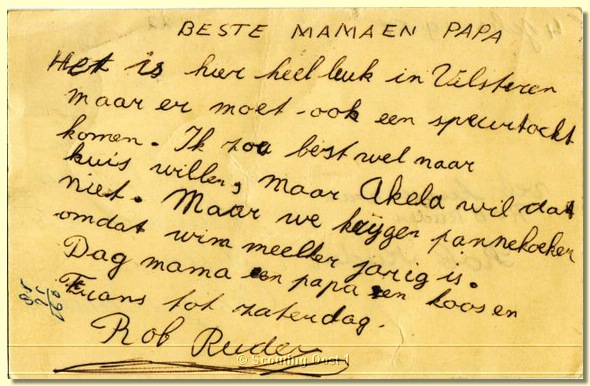 BESTE MAMA EN PAPA
Het is hier heel leuk in Vilsteren
maar er moet ook een speurtocht
komen. Ik zou best wel naar
huis willen, maar Akela wil dat
niet. Maar we krijgen pannekoeken
omdat wim meeller jarig is.
Dag mama en papa en koos en
Frans tot zaterdag.
Rob Ruder
© Scouting Oost 1